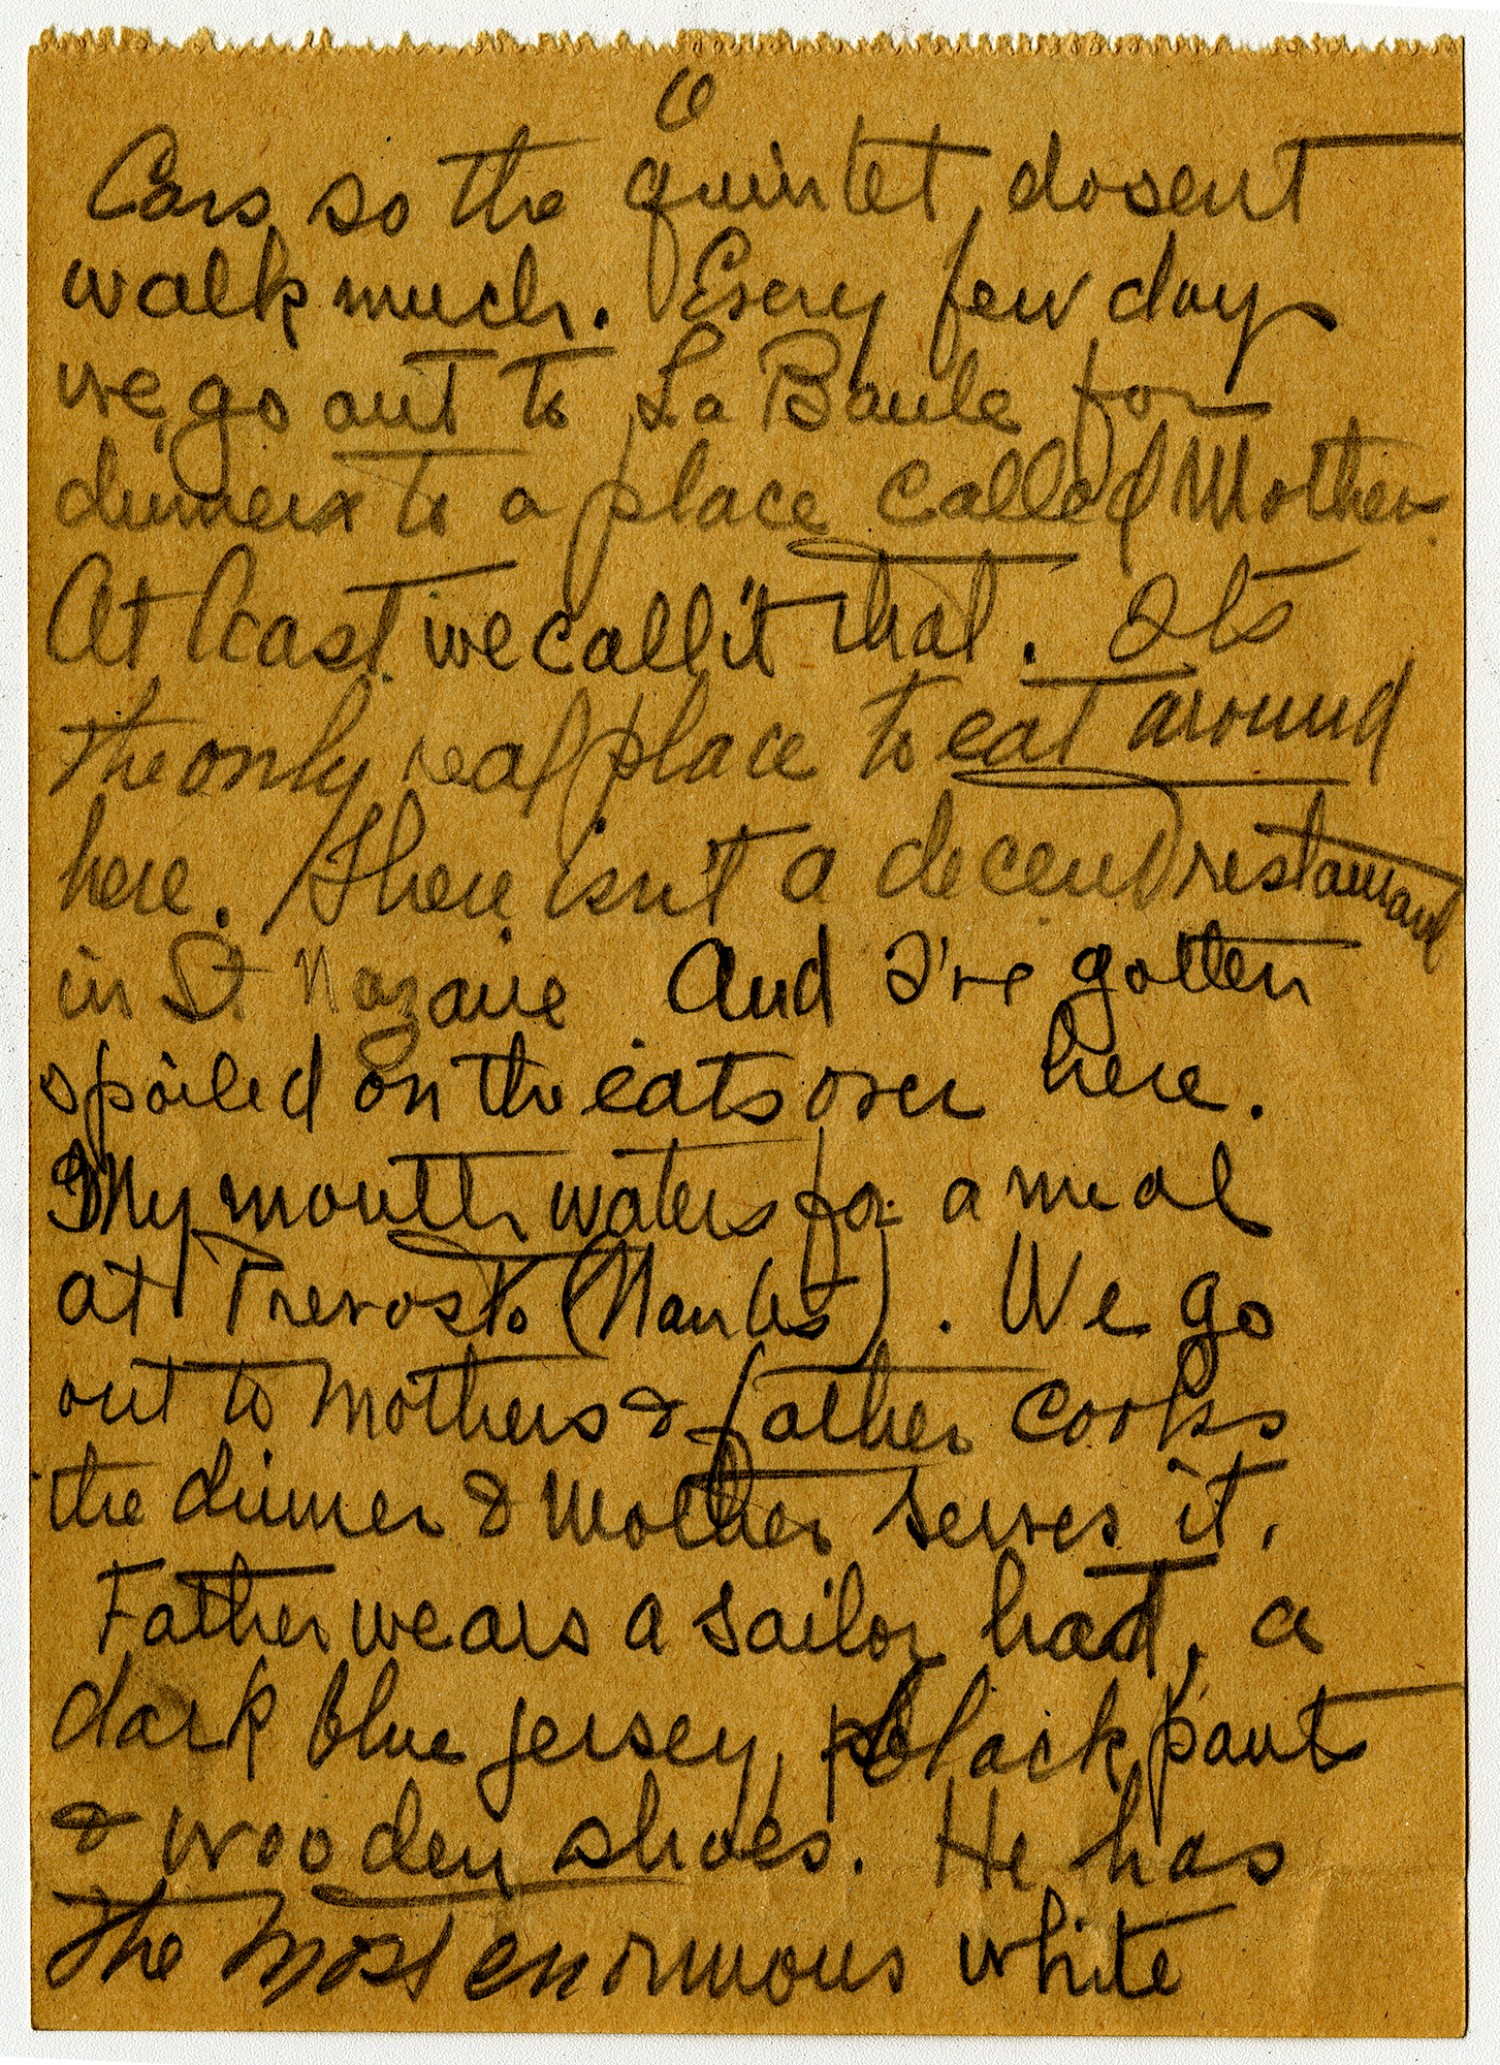 6
Cars so the quintet dosent
walk much. Every few days
we go out to La Baule for
dinner to a place called Mothers.
At least we call it that. Its
the only real place to eat around
here. There isn't a decent restaurant
in St Nazaire and I've gotten
spoiled on the eats over here.
My mouth waters for a meal
at Prevosts (Nantes). We go
out to Mothers & father cooks
the dinner & Mother serves it.
Father wears a sailor hat, a
dark blue jersey, black pants
& wooden shoes. He has
the most enormous white